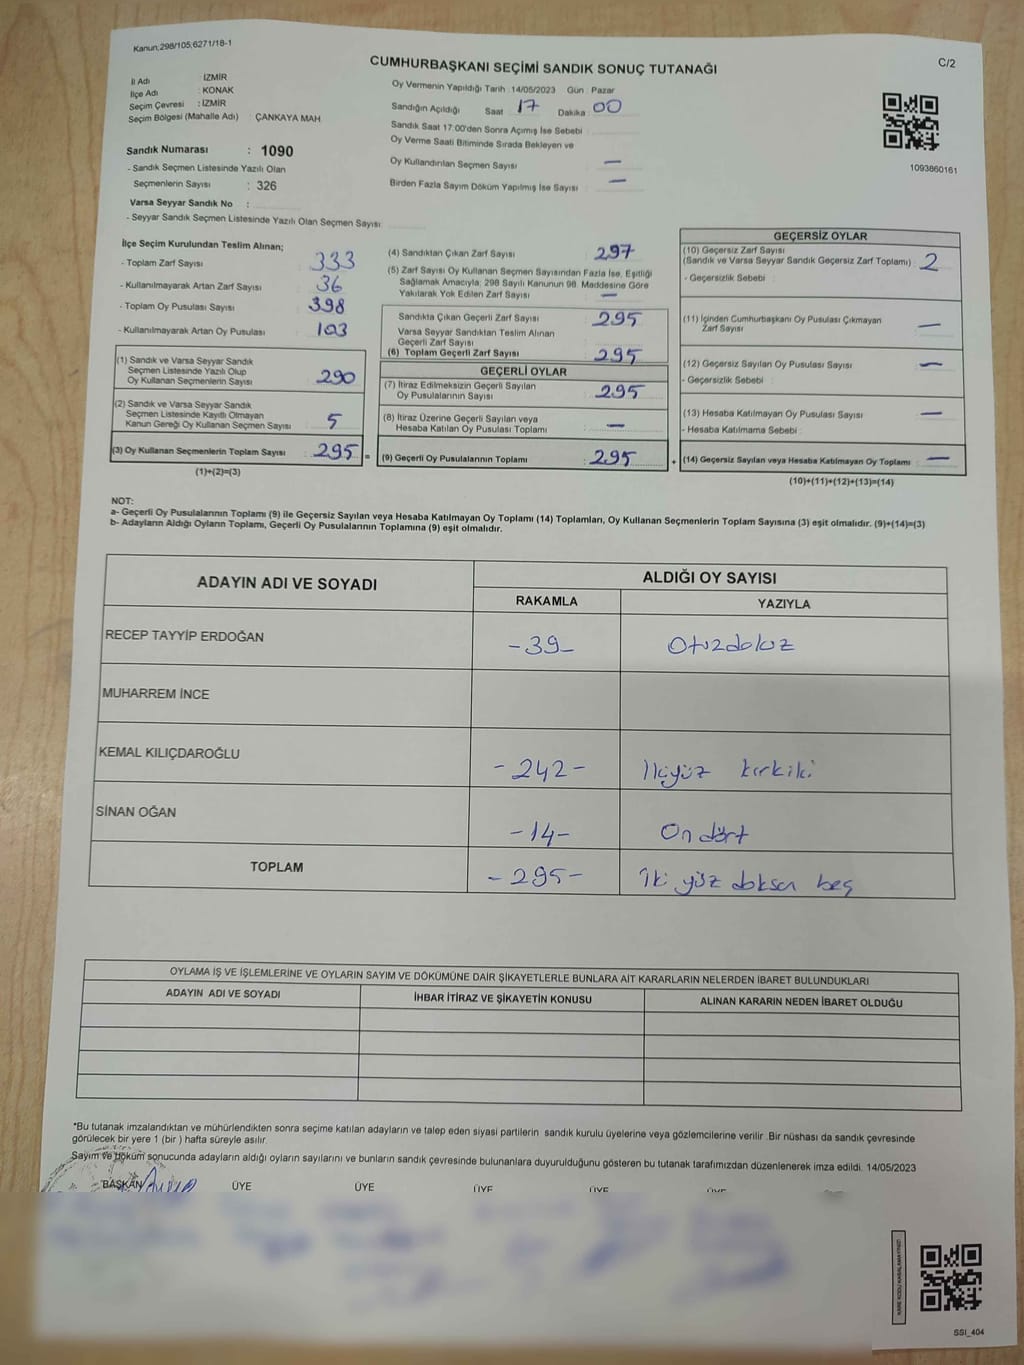 Kanun;298/105;6271/18-1
C/2
CUMHURBAŞKANI SEÇİMİ SANDIK SONUÇ TUTANAĞI
İl Adı : İZMİR
İlçe Adı : KONAK
Seçim Çevresi : İZMİR
Seçim Bölgesi (Mahalle Adı) : ÇANKAYA MAH
Sandık Numarası : 1090
- Sandık Seçmen Listesinde Yazılı Olan
Seçmenlerin Sayısı : 326
Varsa Seyyar Sandık No :
- Seyyar Sandık Seçmen Listesinde Yazılı Olan Seçmen Sayısı
Oy Vermenin Yapıldığı Tarih : 14/05/2023 Gün : Pazar
Sandığın Açıldığı Saat 17 Dakika 00
Sandık Saat 17:00'den Sonra Açımış İse Sebebi :
Oy Verme Saati Bitiminde Sırada Bekleyen ve
Oy Kullandırılan Seçmen Sayısı —
Birden Fazla Sayım Döküm Yapılmış İse Sayısı —
1093860161
İlçe Seçim Kurulundan Teslim Alınan;
- Toplam Zarf Sayısı : 333
- Kullanılmayarak Artan Zarf Sayısı : 36
- Toplam Oy Pusulası Sayısı : 398
- Kullanılmayarak Artan Oy Pusulası : 103
(1) Sandık ve Varsa Seyyar Sandık
Seçmen Listesinde Yazılı Olup
Oy Kullanan Seçmenlerin Sayısı : 290
(2) Sandık ve Varsa Seyyar Sandık
Seçmen Listesinde Kayıtlı Olmayan
Kanun Gereği Oy Kullanan Seçmen Sayısı : 5
(3) Oy Kullanan Seçmenlerin Toplam Sayısı : 295 =
(1)+(2)=(3)
(4) Sandıktan Çıkan Zarf Sayısı : 297
(5) Zarf Sayısı Oy Kullanan Seçmen Sayısından Fazla İse, Eşitliği
Sağlamak Amacıyla; 298 Sayılı Kanunun 98. Maddesine Göre
Yakılarak Yok Edilen Zarf Sayısı : —
Sandıkta Çıkan Geçerli Zarf Sayısı : 295
Varsa Seyyar Sandıktan Teslim Alınan
Geçerli Zarf Sayısı :
(6) Toplam Geçerli Zarf Sayısı : 295
GEÇERLİ OYLAR
(7) İtiraz Edilmeksizin Geçerli Sayılan
Oy Pusulalarının Sayısı : 295
(8) İtiraz Üzerine Geçerli Sayılan veya
Hesaba Katılan Oy Pusulası Toplamı : —
(9) Geçerli Oy Pusulalarının Toplamı : 295 +
GEÇERSİZ OYLAR
(10) Geçersiz Zarf Sayısı
(Sandık ve Varsa Seyyar Sandık Geçersiz Zarf Toplamı) : 2
- Geçersizlik Sebebi :
(11) İçinden Cumhurbaşkanı Oy Pusulası Çıkmayan
Zarf Sayısı : —
(12) Geçersiz Sayılan Oy Pusulası Sayısı : —
- Geçersizlik Sebebi :
(13) Hesaba Katılmayan Oy Pusulası Sayısı : —
- Hesaba Katılmama Sebebi :
(14) Geçersiz Sayılan veya Hesaba Katılmayan Oy Toplamı : —
(10)+(11)+(12)+(13)=(14)
NOT:
a- Geçerli Oy Pusulalarının Toplamı (9) ile Geçersiz Sayılan veya Hesaba Katılmayan Oy Toplamı (14) Toplamları, Oy Kullanan Seçmenlerin Toplam Sayısına (3) eşit olmalıdır. (9)+(14)=(3)
b- Adayların Aldığı Oyların Toplamı, Geçerli Oy Pusulalarının Toplamına (9) eşit olmalıdır.
ADAYIN ADI VE SOYADI ALDIĞI OY SAYISI
RAKAMLA YAZIYLA
RECEP TAYYİP ERDOĞAN -39- Otuzdokuz
MUHARREM İNCE
KEMAL KILIÇDAROĞLU -242- İkiyüz kırkiki
SİNAN OĞAN -14- On dört
TOPLAM -295- İki yüz doksan beş
OYLAMA İŞ VE İŞLEMLERİNE VE OYLARIN SAYIM VE DÖKÜMÜNE DAİR ŞİKAYETLERLE BUNLARA AİT KARARLARIN NELERDEN İBARET BULUNDUKLARI
ADAYIN ADI VE SOYADI İHBAR İTİRAZ VE ŞİKAYETİN KONUSU ALINAN KARARIN NEDEN İBARET OLDUĞU
*Bu tutanak imzalandıktan ve mühürlendikten sonra seçime katılan adayların ve talep eden siyasi partilerin sandık kurulu üyelerine veya gözlemcilerine verilir .Bir nüshası da sandık çevresinde
görülecek bir yere 1 (bir ) hafta süreyle asılır.
Sayım ve döküm sonucunda adayların aldığı oyların sayılarını ve bunların sandık çevresinde bulunanlara duyurulduğunu gösteren bu tutanak tarafımızdan düzenlenerek imza edildi. 14/05/2023
BAŞKAN ÜYE ÜYE ÜYE ÜYE ÜYE
SSI_404